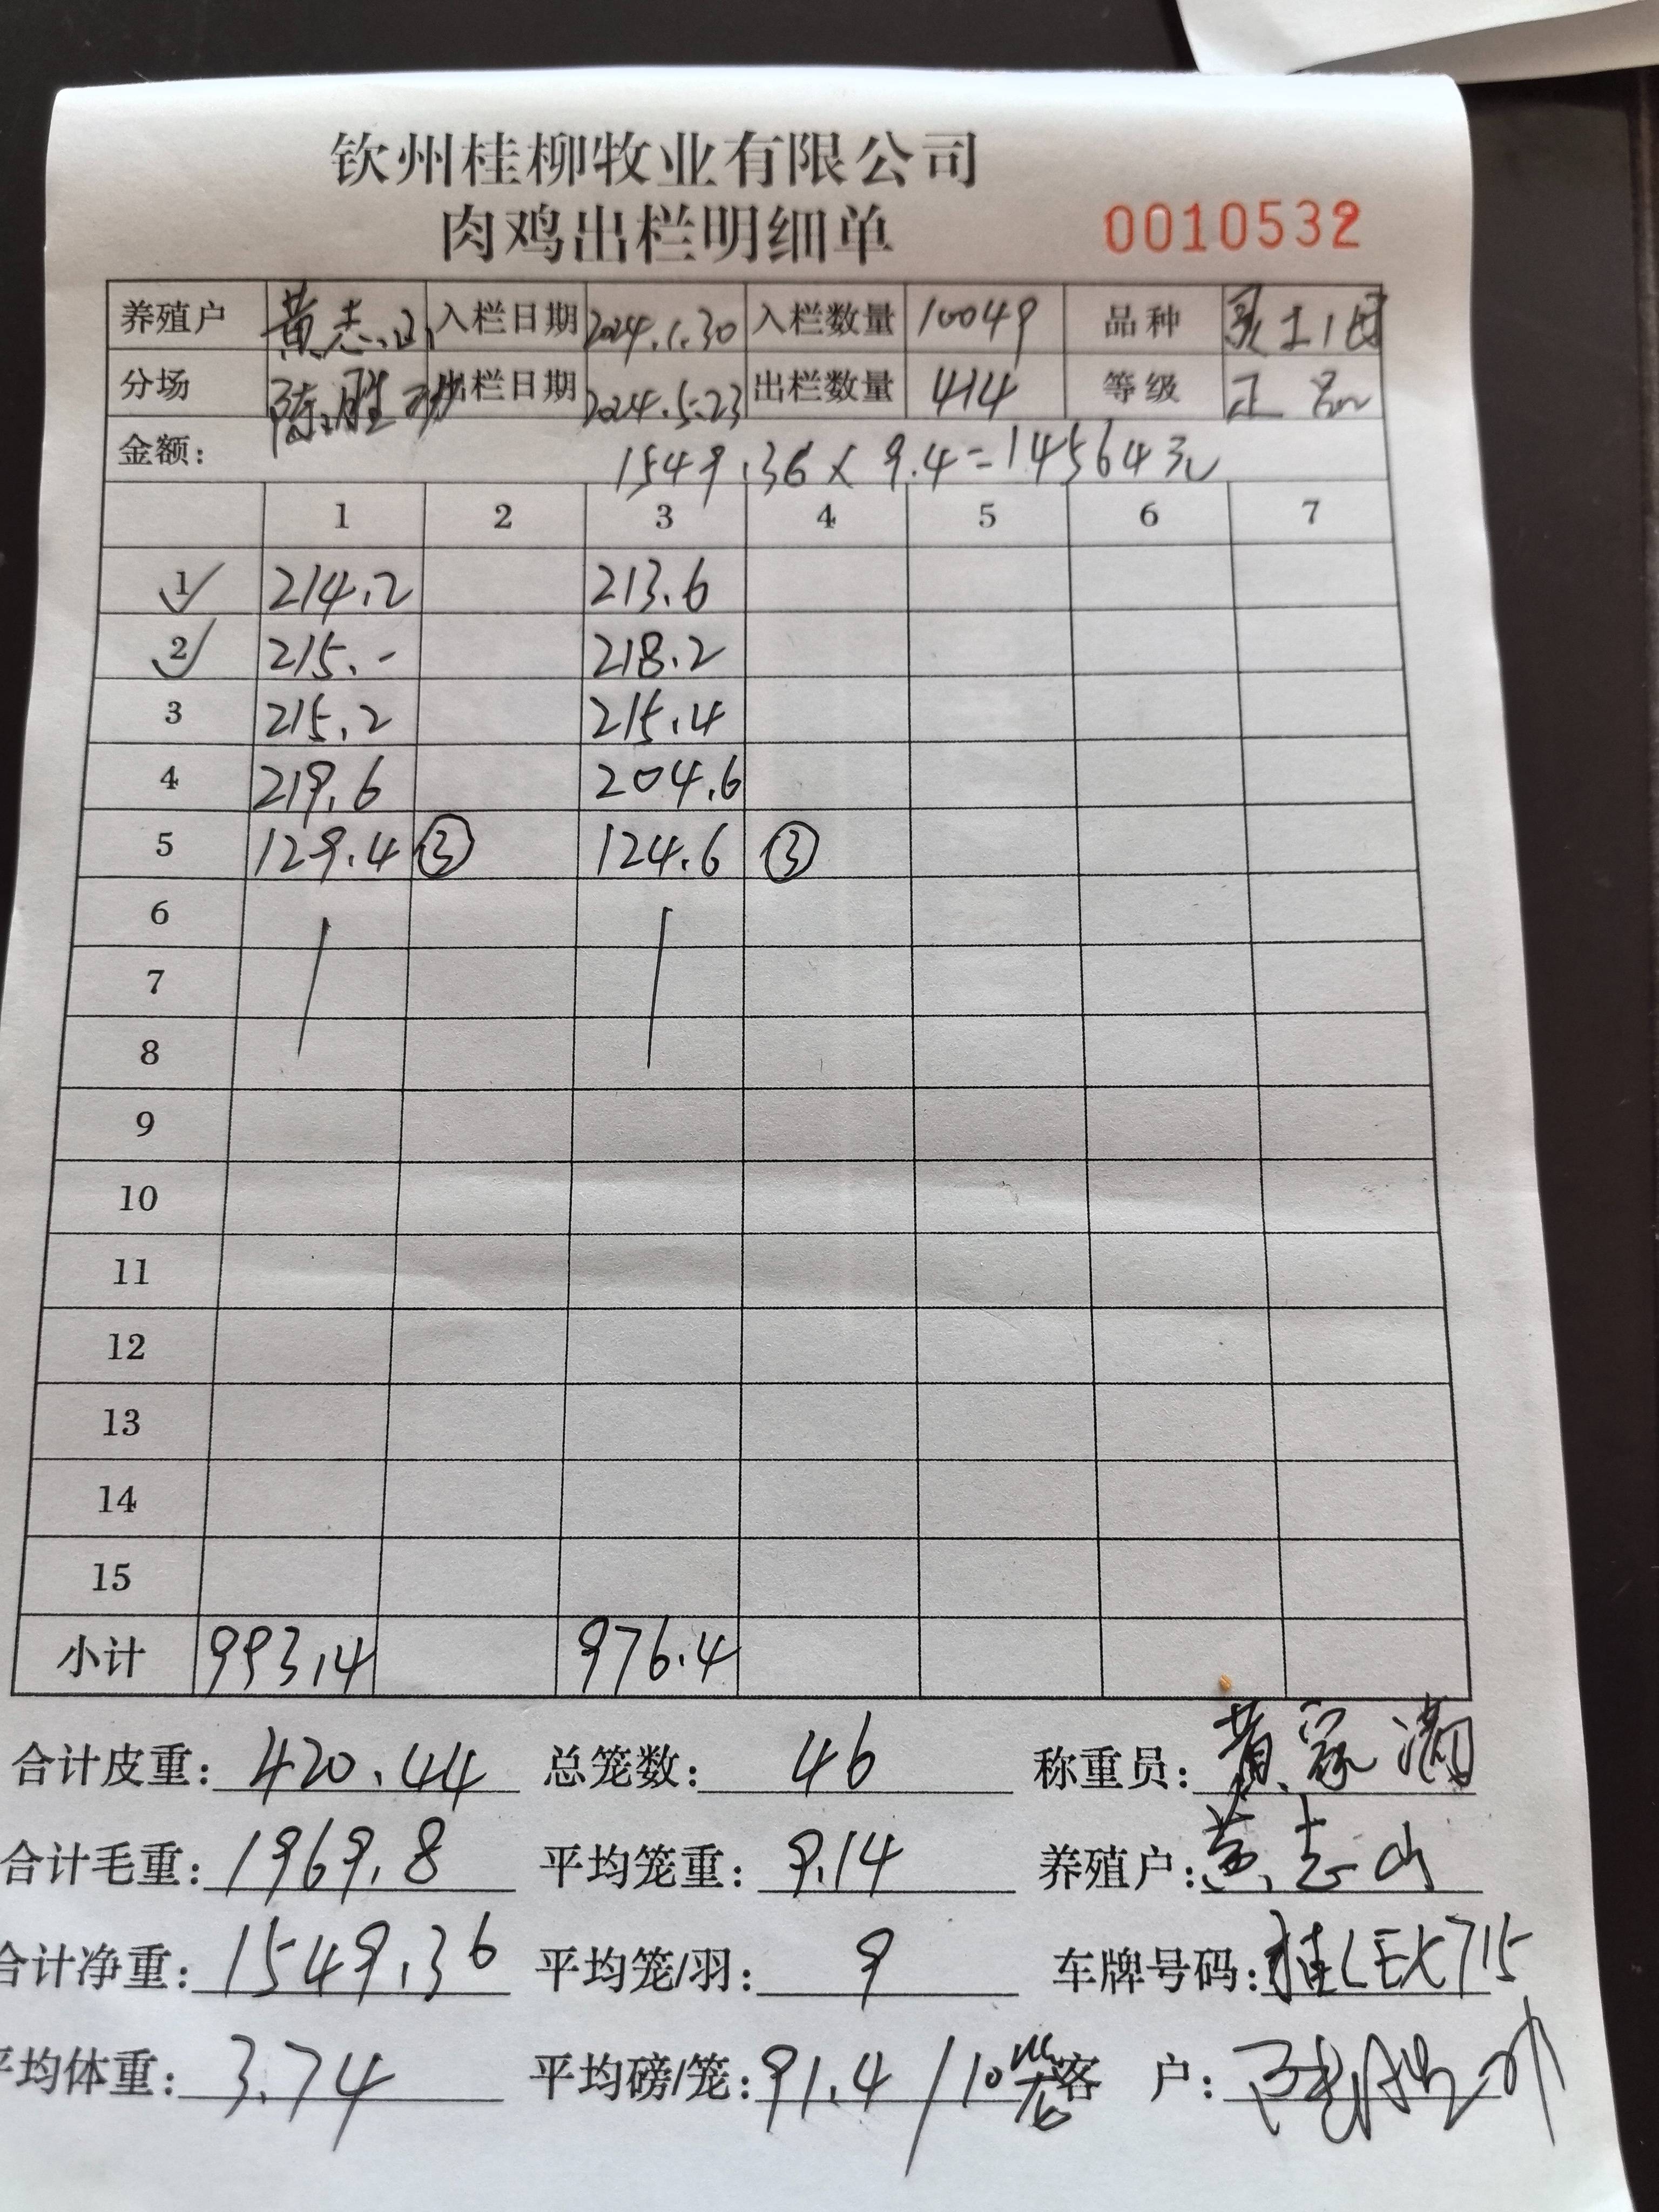 钦州桂柳牧业有限公司
肉鸡出栏明细单 0010532
养殖户 黄志山 入栏日期 2024.1.30 入栏数量 10049 品种 土1母
分场 陈胜 出栏日期 2024.5.23 出栏数量 414 等级 正品
金额: 1549.36 x 9.4=14564元
1 2 3 4 5 6 7
1 214.2 213.6
2 215.- 218.2
3 215.2 215.4
4 219.6 204.6
5 129.4 ③ 124.6 ③
6
7
8
9
10
11
12
13
14
15
小计 993.4 976.4
合计皮重: 420.44 总笼数: 46 称重员: 黄家满
合计毛重: 1969.8 平均笼重: 9.14 养殖户: 黄志山
合计净重: 1549.36 平均笼/羽: 9 车牌号码: 桂LEX715
平均体重: 3.74 平均磅/笼: 91.4/10笼 客户: